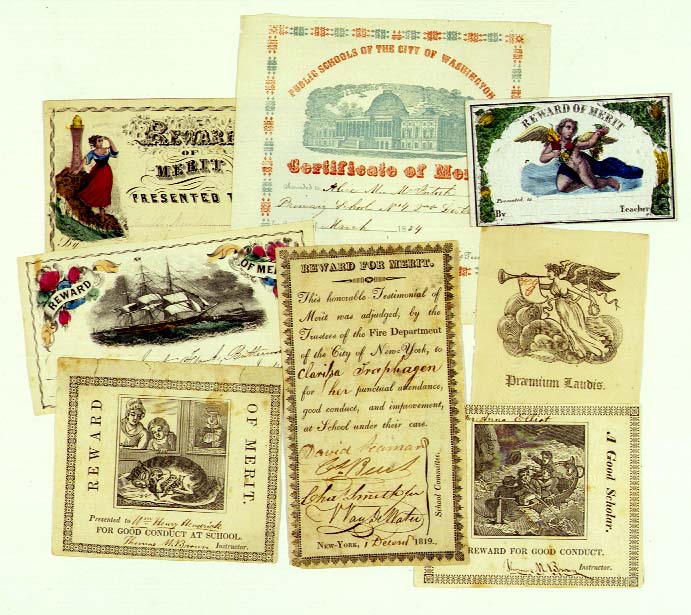 PUBLIC SCHOOLS OF THE CITY OF WASHINGTON
Certificate of Me
awarded to
Primary School No 4
March 18
REWARD
OF
MERIT
PRESENTED T
By
REWARD OF MERIT
Presented to
By Teacher
REWARD OF ME
REWARD FOR MERIT.
This honorable Testimonial of
Merit was adjudged, by the
Trustees of the Fire Department
of the City of New-York, to
Clarissa
for her punctual attendance,
good conduct, and improvement,
at School under their care.
David Seaman
School Committee.
New-York, 1 Decem 1819.
Præmium Laudis.
REWARD OF MERIT.
Presented to Wm Henry Hendrick
FOR GOOD CONDUCT AT SCHOOL.
Thomas M. Brown Instructor.
Anna Elliot
A Good Scholar.
REWARD FOR GOOD CONDUCT.
Thomas M. Brown Instructor.